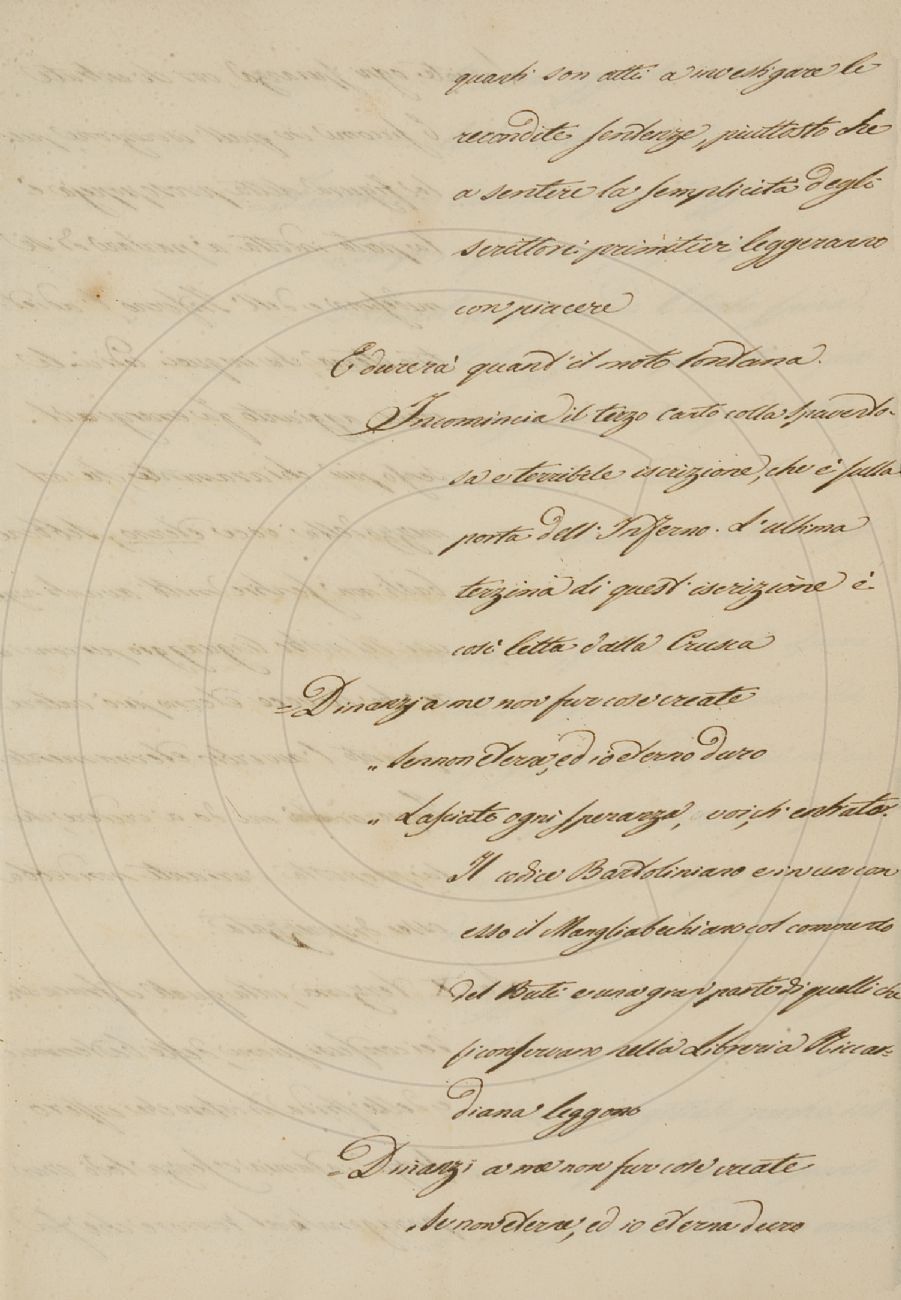 quanti son atti a investigare le
recondite sentenze, piuttosto che
a sentire la semplicità degli
scrittori primitivi leggeranno
con piacere
E durerà quant' il moto lontana.
Incomincia il terzo canto colla spavento-
sa e terribile iscrizione, che è sulla
porta dell' Inferno. L'ultima
terzina di quest' iscrizione è
così letta dalla Crusca
= Dinanzi a me non fur cose create
„ Se non eterne, ed io eterno duro
„ Lasciate ogni speranza, voi, ch' entrate.
Il codice Bartoliniano e in un con
esso il Mangliabechiano col commento
del Buti e una gran parte di quelli che
si conservano nella Libreria Riccar-
diana leggono
= Dinanzi a me non fur cose create
„ Se non eterne, ed io eterna duro